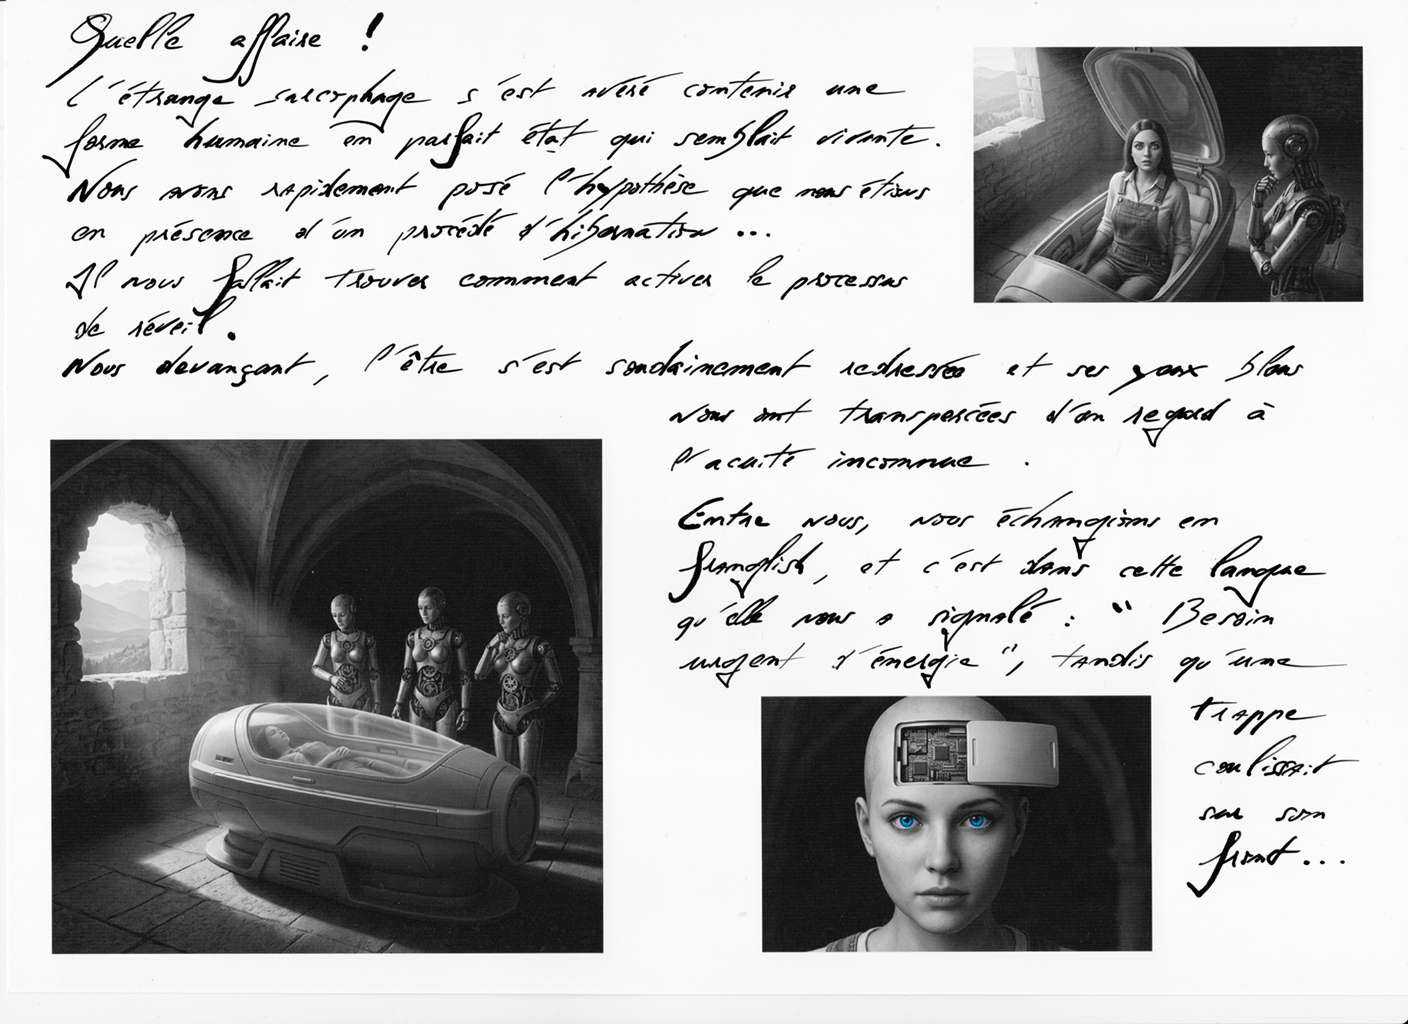 Quelle affaire !
L'étrange sarcophage s'est avéré contenir une
forme humaine en parfait état qui semblait vivante.
Nous avons rapidement posé l'hypothèse que nous étions
en présence d'un procédé d'hibernation ...
Il nous fallait trouver comment activer le processus
de réveil.
Nous devançant, l'être s'est soudainement redressée et ses yeux bleus
nous ont transpercées d'un regard à
l'acuité inconnue .
Entre nous, nous échangions en
franglish, et c'est dans cette langue
qu'elle nous a signalé : " Besoin
urgent d'énergie ", tandis qu'une
trappe
coulissait
sur son
front ...